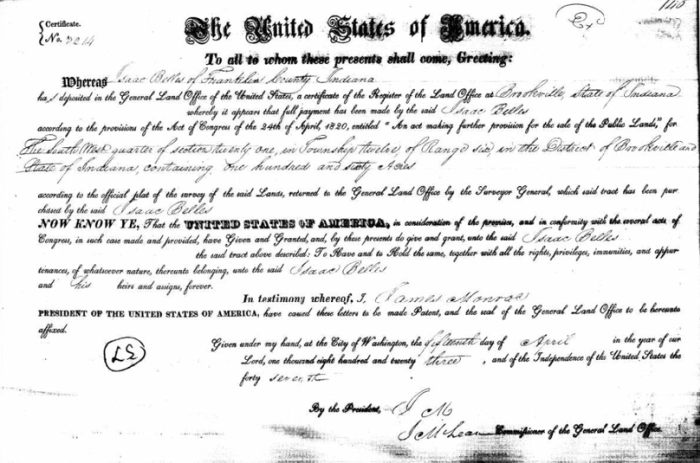 Certificate.
No. 3214
The United States of America.
To all to whom these presents shall come, Greeting:
Whereas Isaac Belles of Franklin County Indiana
has deposited in the General Land Office of the United States, a certificate of the Register of the Land Office at Brookville, State of Indiana
whereby it appears that full payment has been made by the said Isaac Belles
according to the provisions of the Act of Congress of the 24th of April, 1820, entitled "An act making further provision for the sale of the Public Lands," for
The South West quarter of section twenty one, in Township twelve, of Range six, in the District of Brookville and
State of Indiana, containing one hundred and sixty Acres
according to the official plat of the survey of the said Lands, returned to the General Land Office by the Surveyor General, which said tract has been pur
chased by the said Isaac Belles
NOW KNOW YE, That the UNITED STATES OF AMERICA, in consideration of the premises, and in conformity with the several acts of
Congress, in such case made and provided, have Given and Granted, and, by these presents do give and grant, unto the said Isaac Belles
the said tract above described: To Have and to Hold the same, together with all the rights, privileges, immunities, and appur
tenances, of whatsoever nature, thereunto belonging, unto the said Isaac Belles
and his heirs and assigns, forever.
In testimony whereof, I, James Monroe
PRESIDENT OF THE UNITED STATES OF AMERICA, have caused these letters to be made Patent, and the seal of the General Land Office to be hereunto
affixed.
Given under my hand, at the City of Washington, the fifteenth day of April in the year of our
Lord, one thousand eight hundred and twenty three, and of the Independence of the United States the
forty seventh
By the President, J M
J McLean Commissioner of the General Land Office.